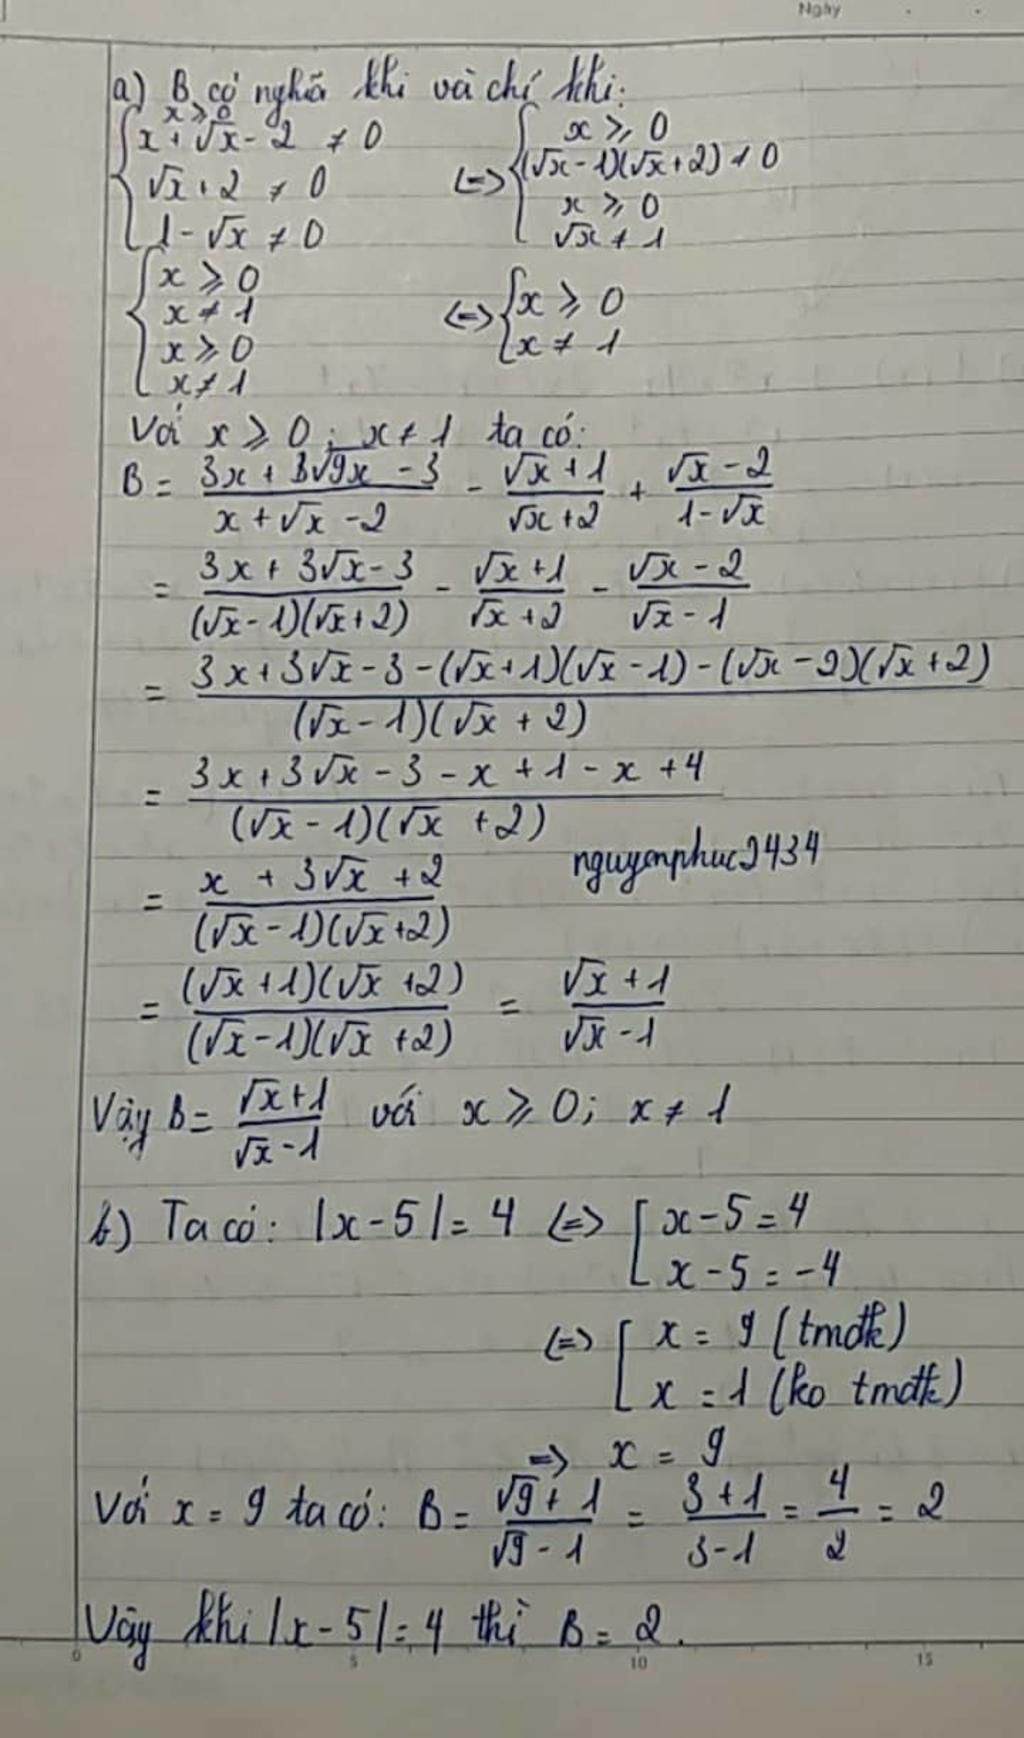 Ngày
a) B có nghĩa khi và chỉ khi:
{ x ≥ 0
x + √x - 2 ≠ 0
√x + 2 ≠ 0
1 - √x ≠ 0
<=> { x ≥ 0
(√x - 1)(√x + 2) ≠ 0
x ≥ 0
√x ≠ 1
{ x ≥ 0
x ≠ 1
x ≥ 0
x ≠ 1
<=> { x ≥ 0
x ≠ 1
Với x ≥ 0; x ≠ 1 ta có:
B = (3x + 3√9x - 3)/(x + √x - 2) - (√x + 1)/(√x + 2) + (√x - 2)/(1 - √x)
= (3x + 3√x - 3)/((√x - 1)(√x + 2)) - (√x + 1)/(√x + 2) - (√x - 2)/(√x - 1)
= (3x + 3√x - 3 - (√x + 1)(√x - 1) - (√x - 2)(√x + 2))/((√x - 1)(√x + 2))
= (3x + 3√x - 3 - x + 1 - x + 4)/((√x - 1)(√x + 2))
nguyenphuc2434
= (x + 3√x + 2)/((√x - 1)(√x + 2))
= ((√x + 1)(√x + 2))/((√x - 1)(√x + 2)) = (√x + 1)/(√x - 1)
Vậy B = (√x + 1)/(√x - 1) với x ≥ 0; x ≠ 1
b) Ta có: |x - 5| = 4 <=> [ x - 5 = 4
x - 5 = -4
<=> [ x = 9 (tmđk)
x = 1 (ko tmđk)
=> x = 9
Với x = 9 ta có: B = (√9 + 1)/(√9 - 1) = (3 + 1)/(3 - 1) = 4/2 = 2
Vậy khi |x - 5| = 4 thì B = 2.
0 5 10 15